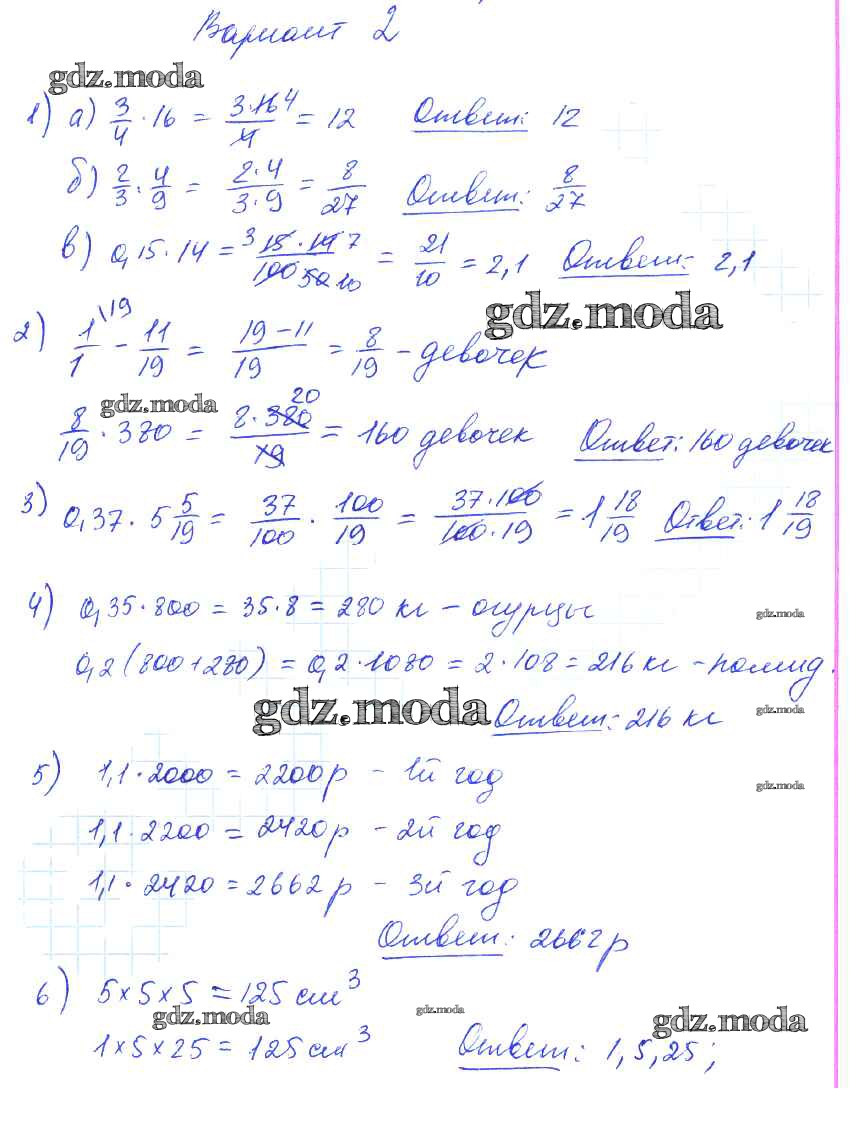 Вариант 2
gdz.moda
1) а) 3/4 · 16 = 3·16 4/4 = 12 Ответ: 12
б) 2/3 · 4/9 = 2·4/3·9 = 8/27 Ответ: 8/27
в) 0,15·14 = 3 15·14 7/100 50 10 = 21/10 = 2,1 Ответ: 2,1
gdz.moda
2) 1/1 \19 - 11/19 = 19-11/19 = 8/19 - девочек
gdz.moda
8/19 · 380 = 8·380 20/19 = 160 девочек Ответ: 160 девочек
3) 0,37 · 5 5/19 = 37/100 · 100/19 = 37·100/100·19 = 1 18/19 Ответ: 1 18/19
4) 0,35·800 = 35·8 = 280 кг - огурцы
gdz.moda
0,2(800+280) = 0,2·1080 = 2·108 = 216 кг - помид.
gdz.moda Ответ: 216 кг gdz.moda
5) 1,1·2000 = 2200р - 1й год
gdz.moda
1,1·2200 = 2420р - 2й год
1,1·2420 = 2662р - 3й год
Ответ: 2662р
6) 5×5×5 = 125 см³
gdz.moda gdz.moda gdz.moda
1×5×25 = 125 см³ Ответ: 1,5,25;